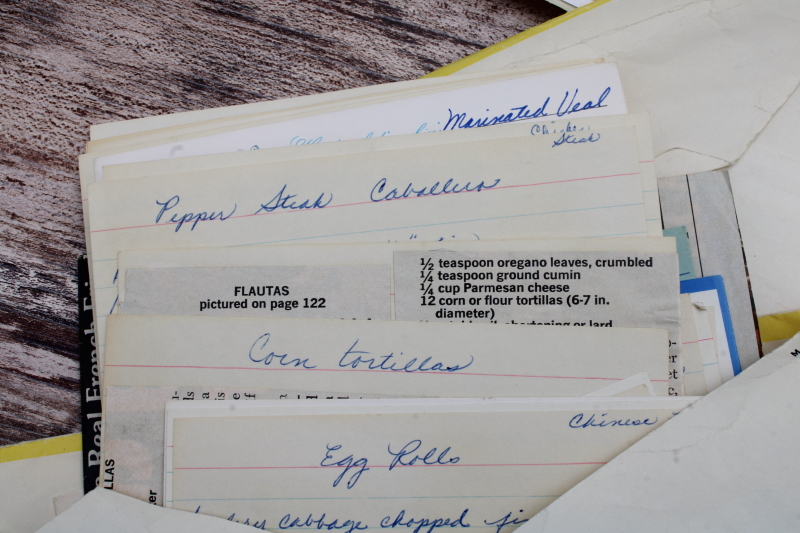 Marinated Veal
Chicken
Steak
Pepper Steak Caballero
FLAUTAS
pictured on page 122
½ teaspoon oregano leaves, crumbled
¼ teaspoon ground cumin
¼ cup Parmesan cheese
12 corn or flour tortillas (6-7 in.
diameter)
or lard
Corn tortillas
Chinese
Egg Rolls
cabbage chopped
Real French